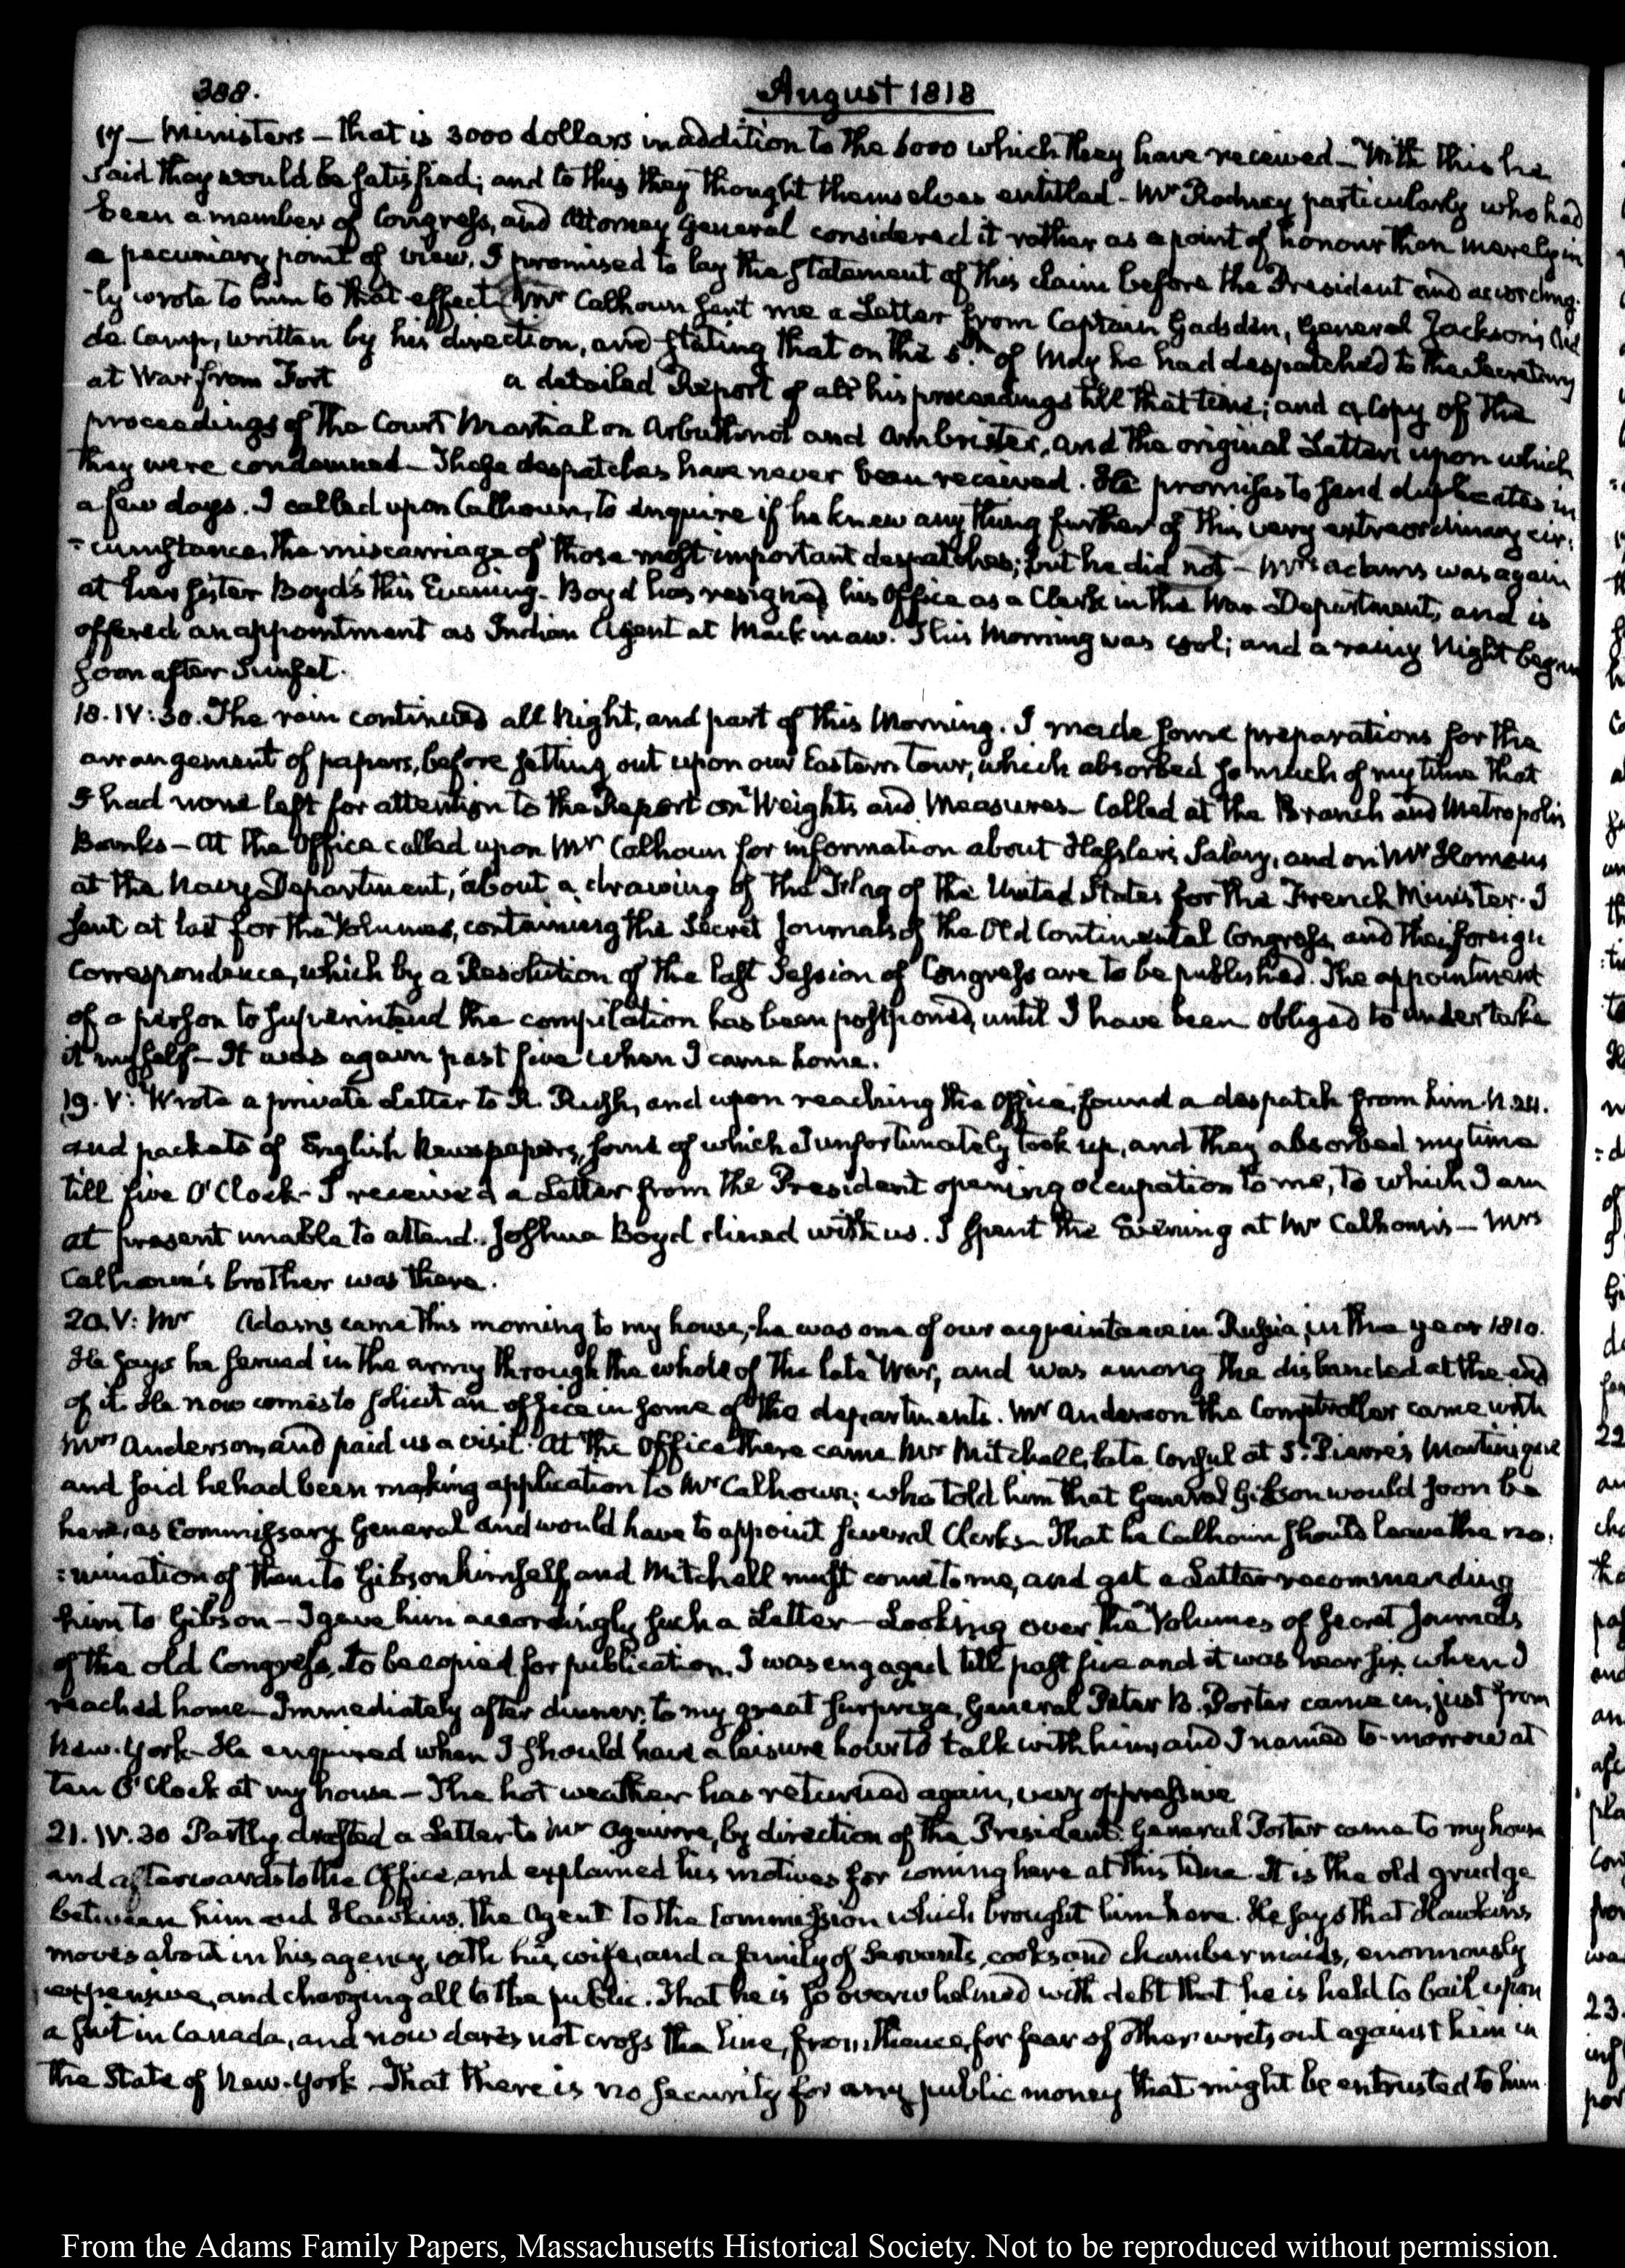 388.
August 1818
17 — Ministers — that is 3000 dollars in addition to the 6000 which they have received — With this he
said they would be satisfied; and to this they thought themselves entitled — Mr Rodney particularly who had
been a member of Congress, and Attorney General considered it rather as a point of honour than merely in
a pecuniary point of view. I promised to lay the statement of this claim before the President and according-
-ly wrote to him to that effect. Mr Calhoun sent me a Letter from Captain Gadsden, General Jackson's Aid
de Camp, written by his direction, and stating that on the 5th of May he had despatched to the Secretary
at War from Fort a detailed Report of all his proceedings till that time; and a Copy of the
proceedings of the Court Martial on Arbuthnot and Ambrister, and the original Letters upon which
they were condemned — These despatches have never been received. He promises to send duplicates in
a few days. I called upon Calhoun, to enquire if he knew any thing further of this very extraordinary cir-
:cumstance, the miscarriage of those most important despatches; but he did not — Mrs Adams was again
at her Sister Boyd's this Evening. Boyd has resigned his Office as a Clerk in the War Department, and is
offered an appointment as Indian Agent at Mackinaw. This Morning was cool; and a rainy Night began
soon after Sunset.
18. IV:30. The rain continued all Night, and part of this Morning. I made some preparations for the
arrangement of papers, before setting out upon our Eastern tour, which absorbed so much of my time that
I had none left for attention to the Report on Weights and Measures — Called at the Branch and Metropolis
Banks — At the Office called upon Mr Calhoun for information about Hassler's Salary, and on Mr Homans
at the Navy Department, about a drawing of the Flag of the United States for the French Minister. I
sent at last for the Volumes, containing the Secret Journals of the Old Continental Congress, and their foreign
Correspondence, which by a Resolution of the last Session of Congress are to be published. The appointment
of a person to superintend the compilation has been postponed, until I have been obliged to undertake
it myself — It was again past five when I came home.
19. V: Wrote a private Letter to R. Rush, and upon reaching the Office, found a despatch from him N. 24.
and packets of English Newspapers, some of which I unfortunately took up, and they absorbed my time
till five O'Clock — I received a Letter from the President opening occupation to me, to which I am
at present unable to attend. Joshua Boyd dined with us. I spent the Evening at Mr Calhoun's — Mrs
Calhoun's brother was there.
20. V: Mr Adams came this morning to my house, he was one of our acquaintance in Russia, in the year 1810.
He says he served in the army through the whole of the late War, and was among the disbanded at the end
of it. He now comes to solicit an office in some of the departments. Mr Anderson the Comptroller came with
Mrs Anderson, and paid us a visit. At the Office there came Mr Mitchell, late Consul at St. Pierre's Martinique
and said he had been making application to Mr Calhoun; who told him that General Gibson would soon be
here, as Commissary General and would have to appoint several Clerks — That he Calhoun should leave the no-
:mination of them to Gibson himself, and Mitchell must come to me, and get a Letter recommending
him to Gibson — I gave him accordingly such a Letter — Looking over the Volumes of Secret Journals
of the old Congress, to be copied for publication, I was engaged till past five and it was near six when I
reached home — Immediately after dinner, to my great surprize, General Peter B. Porter came in, just from
New-York — He enquired when I should have a leisure hour to talk with him, and I named to-morrow at
ten O'Clock at my house — The hot weather has returned again, very oppressive
21. IV.30 Partly drafted a Letter to Mr Aguirre, by direction of the President. General Porter came to my house
and afterwards to the Office, and explained his motives for coming here at this time. It is the old grudge
between him and Hawkins, the Agent to the Commission which brought him here. He says that Hawkins
moves about in his agency, with his wife, and a family of servants, cooks and chambermaids, enormously
expensive, and charging all to the public. That he is so overwhelmed with debt that he is held to bail upon
a suit in Canada, and now dares not cross the line, from thence, for fear of other writs out against him in
the State of New-York — That there is no security for any public money that might be entrusted to him.
From the Adams Family Papers, Massachusetts Historical Society. Not to be reproduced without permission.